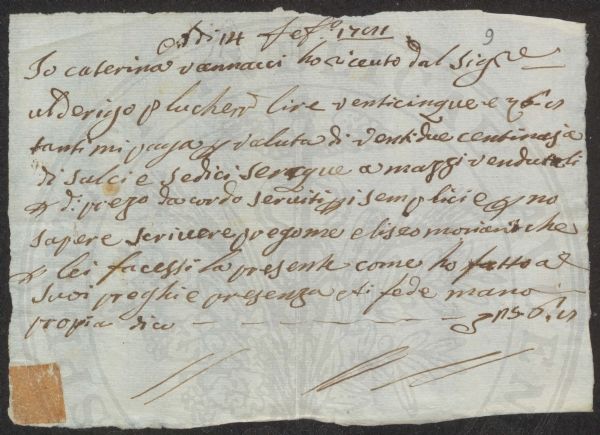 Adi 14 1701
9
Io caterina vannacci ho riceuto dal Sigre
ulderigo p lucheri lire venticinque e
tanti mi paga p valuta di ventidue centinaja
di salci e sedici a mazzi venduteli
p di prezo dacordo servitisi semplici e p no
sapere scrivere prego me eliseo moriani che
p lei facessi la presente come ho fatto a
suoi preghi e presenza et i fede mano
propia dico